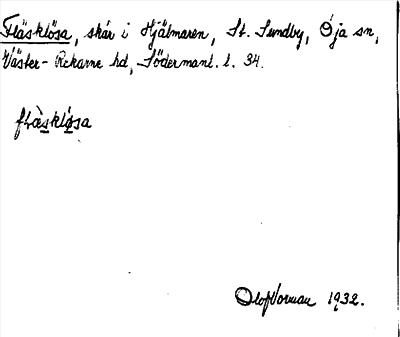 Fläsklösa, skär i Hjälmaren, St. Sundby, Öja sn,
Väster-Rekarne hd, Södermanl. l. 34.
flæ̀sklø̀sa
Olof Vorman 1932.